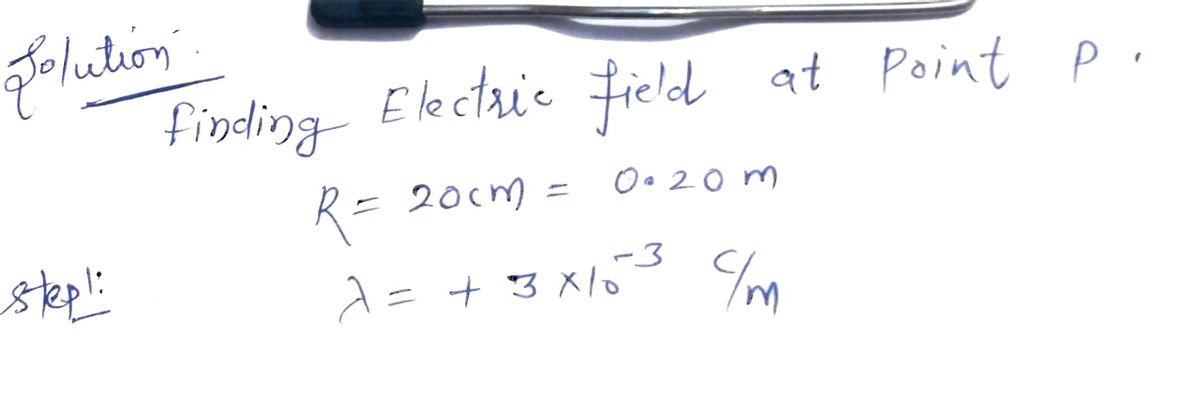 Solution
finding Electric field at Point P.
R = 20cm = 0.20 m
step1: λ = + 3 x10⁻³ C/m